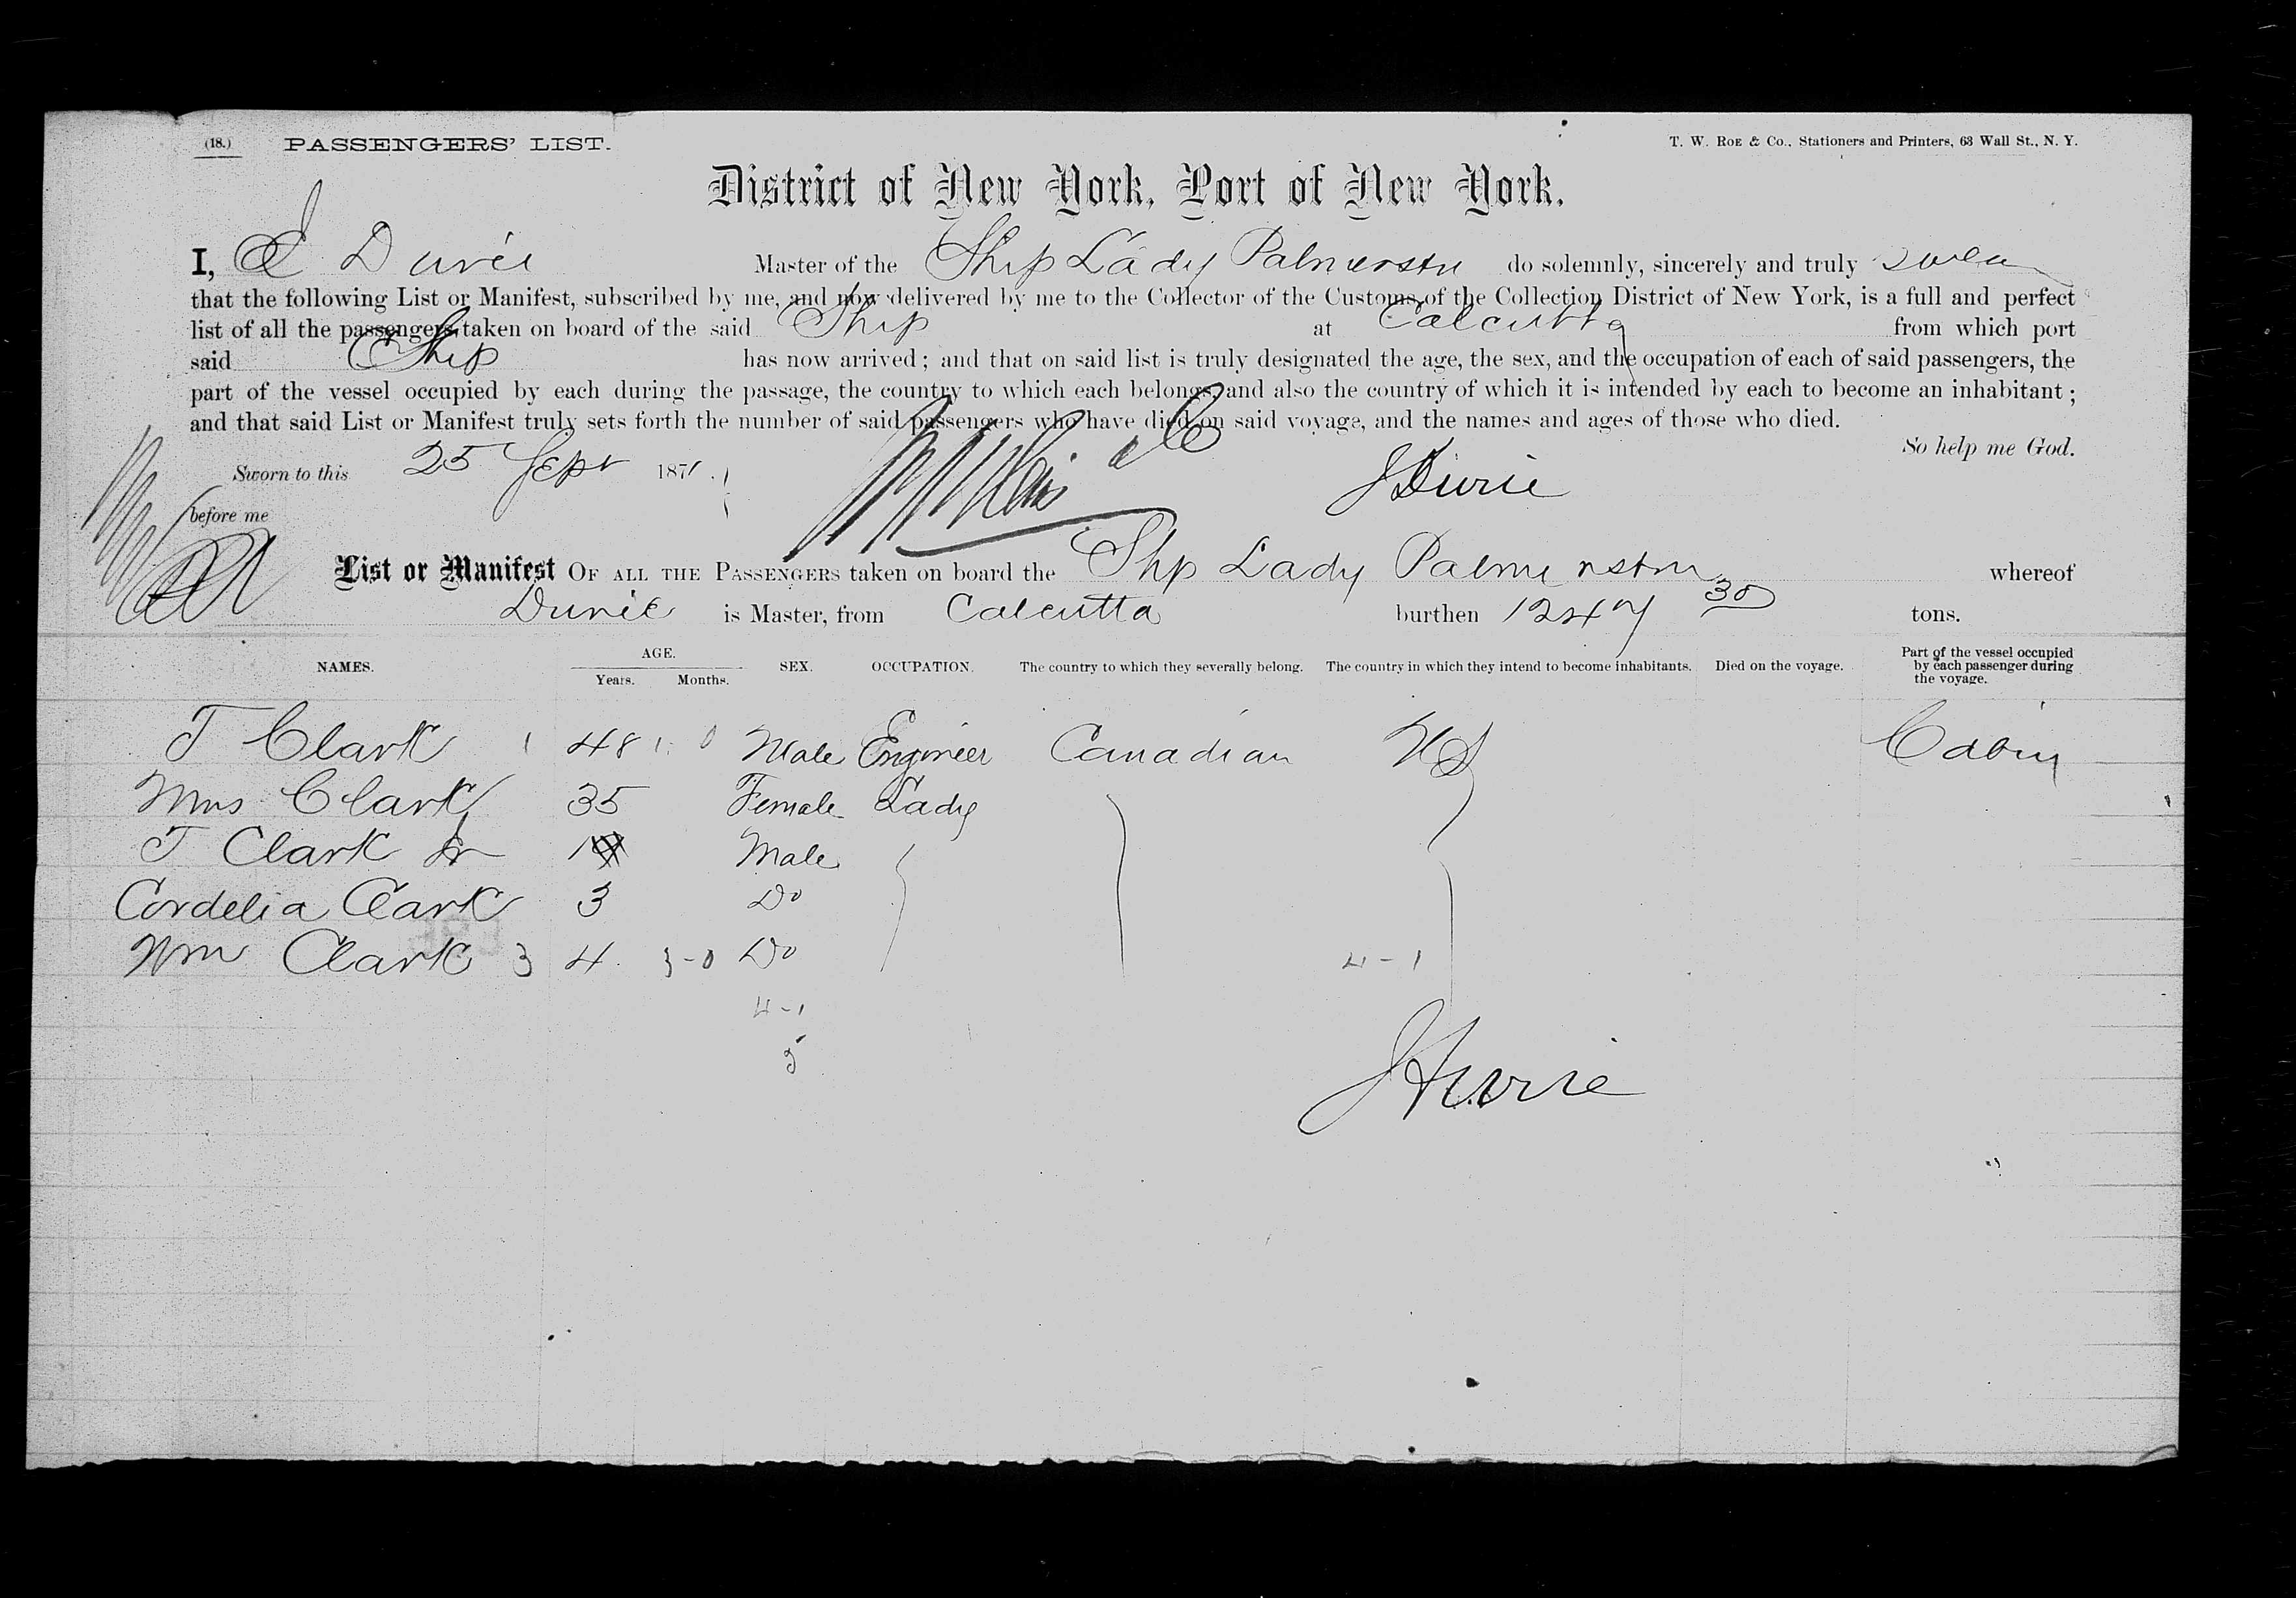 (18.) PASSENGERS' LIST. T. W. ROE & Co., Stationers and Printers, 63 Wall St., N. Y.
District of New York, Port of New York.
I, Durie Master of the Ship Lady Palmerston do solemnly, sincerely and truly swear
that the following List or Manifest, subscribed by me, and now delivered by me to the Collector of the Customs of the Collection District of New York, is a full and perfect
list of all the passengers taken on board of the said Ship at Calcutta from which port
said Ship has now arrived; and that on said list is truly designated the age, the sex, and the occupation of each of said passengers, the
part of the vessel occupied by each during the passage, the country to which each belongs, and also the country of which it is intended by each to become an inhabitant;
and that said List or Manifest truly sets forth the number of said passengers who have died on said voyage, and the names and ages of those who died.
So help me God.
Sworn to this 25 Sept 1871. J Durie
before me
List or Manifest OF ALL THE PASSENGERS taken on board the Ship Lady Palmerston whereof
Durie is Master, from Calcutta burthen 1247 30 tons.
NAMES. AGE. Years. Months. SEX. OCCUPATION. The country to which they severally belong. The country in which they intend to become inhabitants. Died on the voyage. Part of the vessel occupied by each passenger during the voyage.
T Clark 1 48 1. 0 Male Engineer Canadian US Cabin
Mrs Clark 35 Female Lady
T Clark Jr Male
Cordelia Clark 3 Do
Wm Clark 3 4 3-0 Do 4-1
4-1
5
J Durie